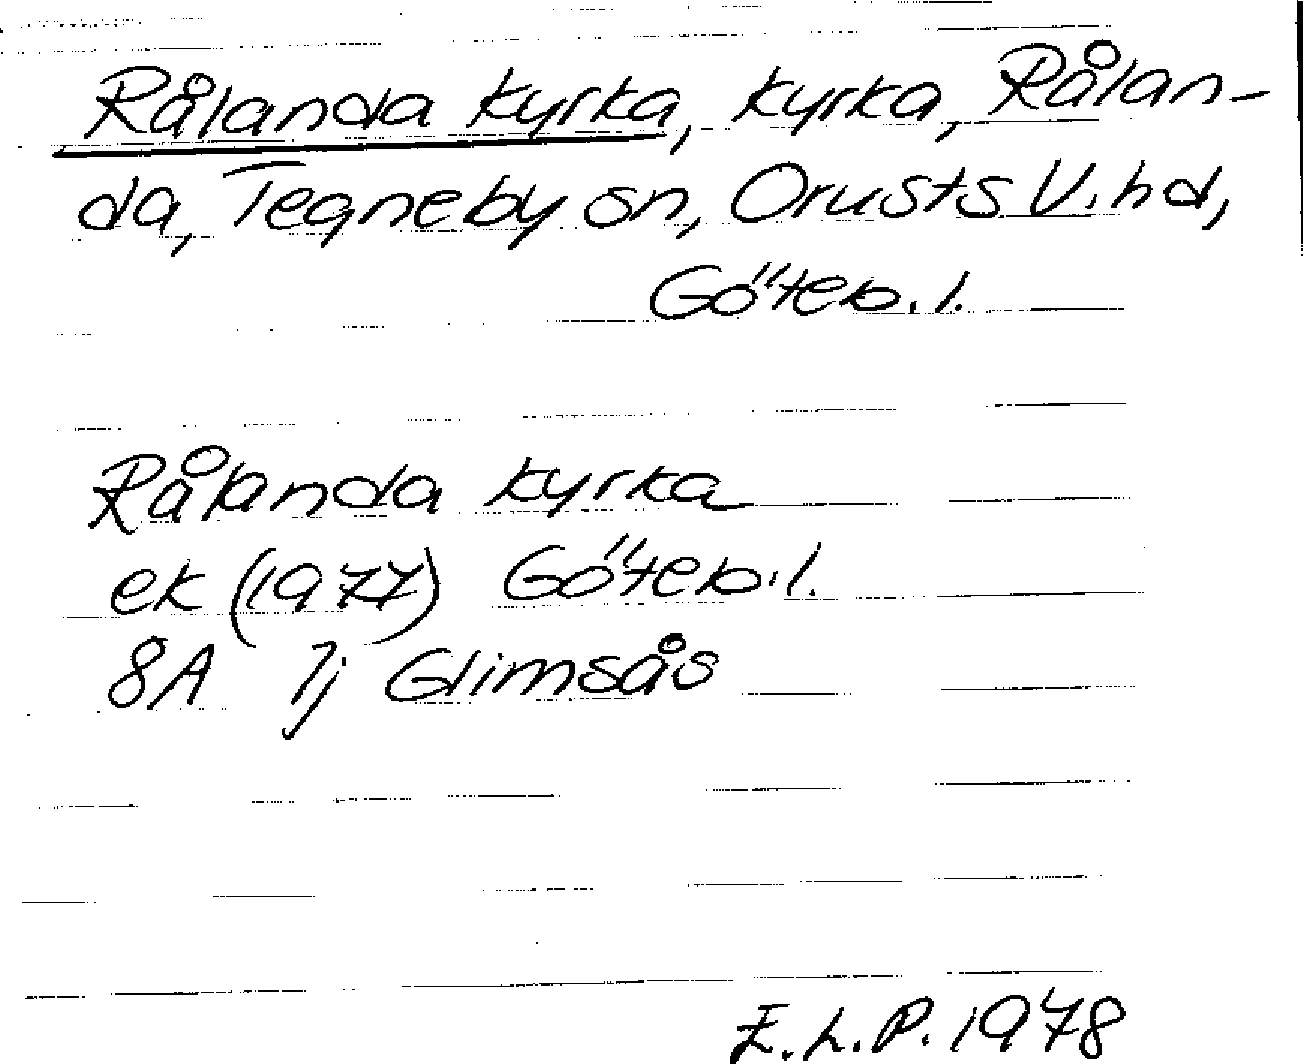 Rålanda kyrka, kyrka, Rålan-
da, Tegneby sn, Orusts V. hd,
Göteb. l.
Rålanda kyrka
ek (1977) Göteb. l.
8A 7j Glimsås
E. L. P. 1978